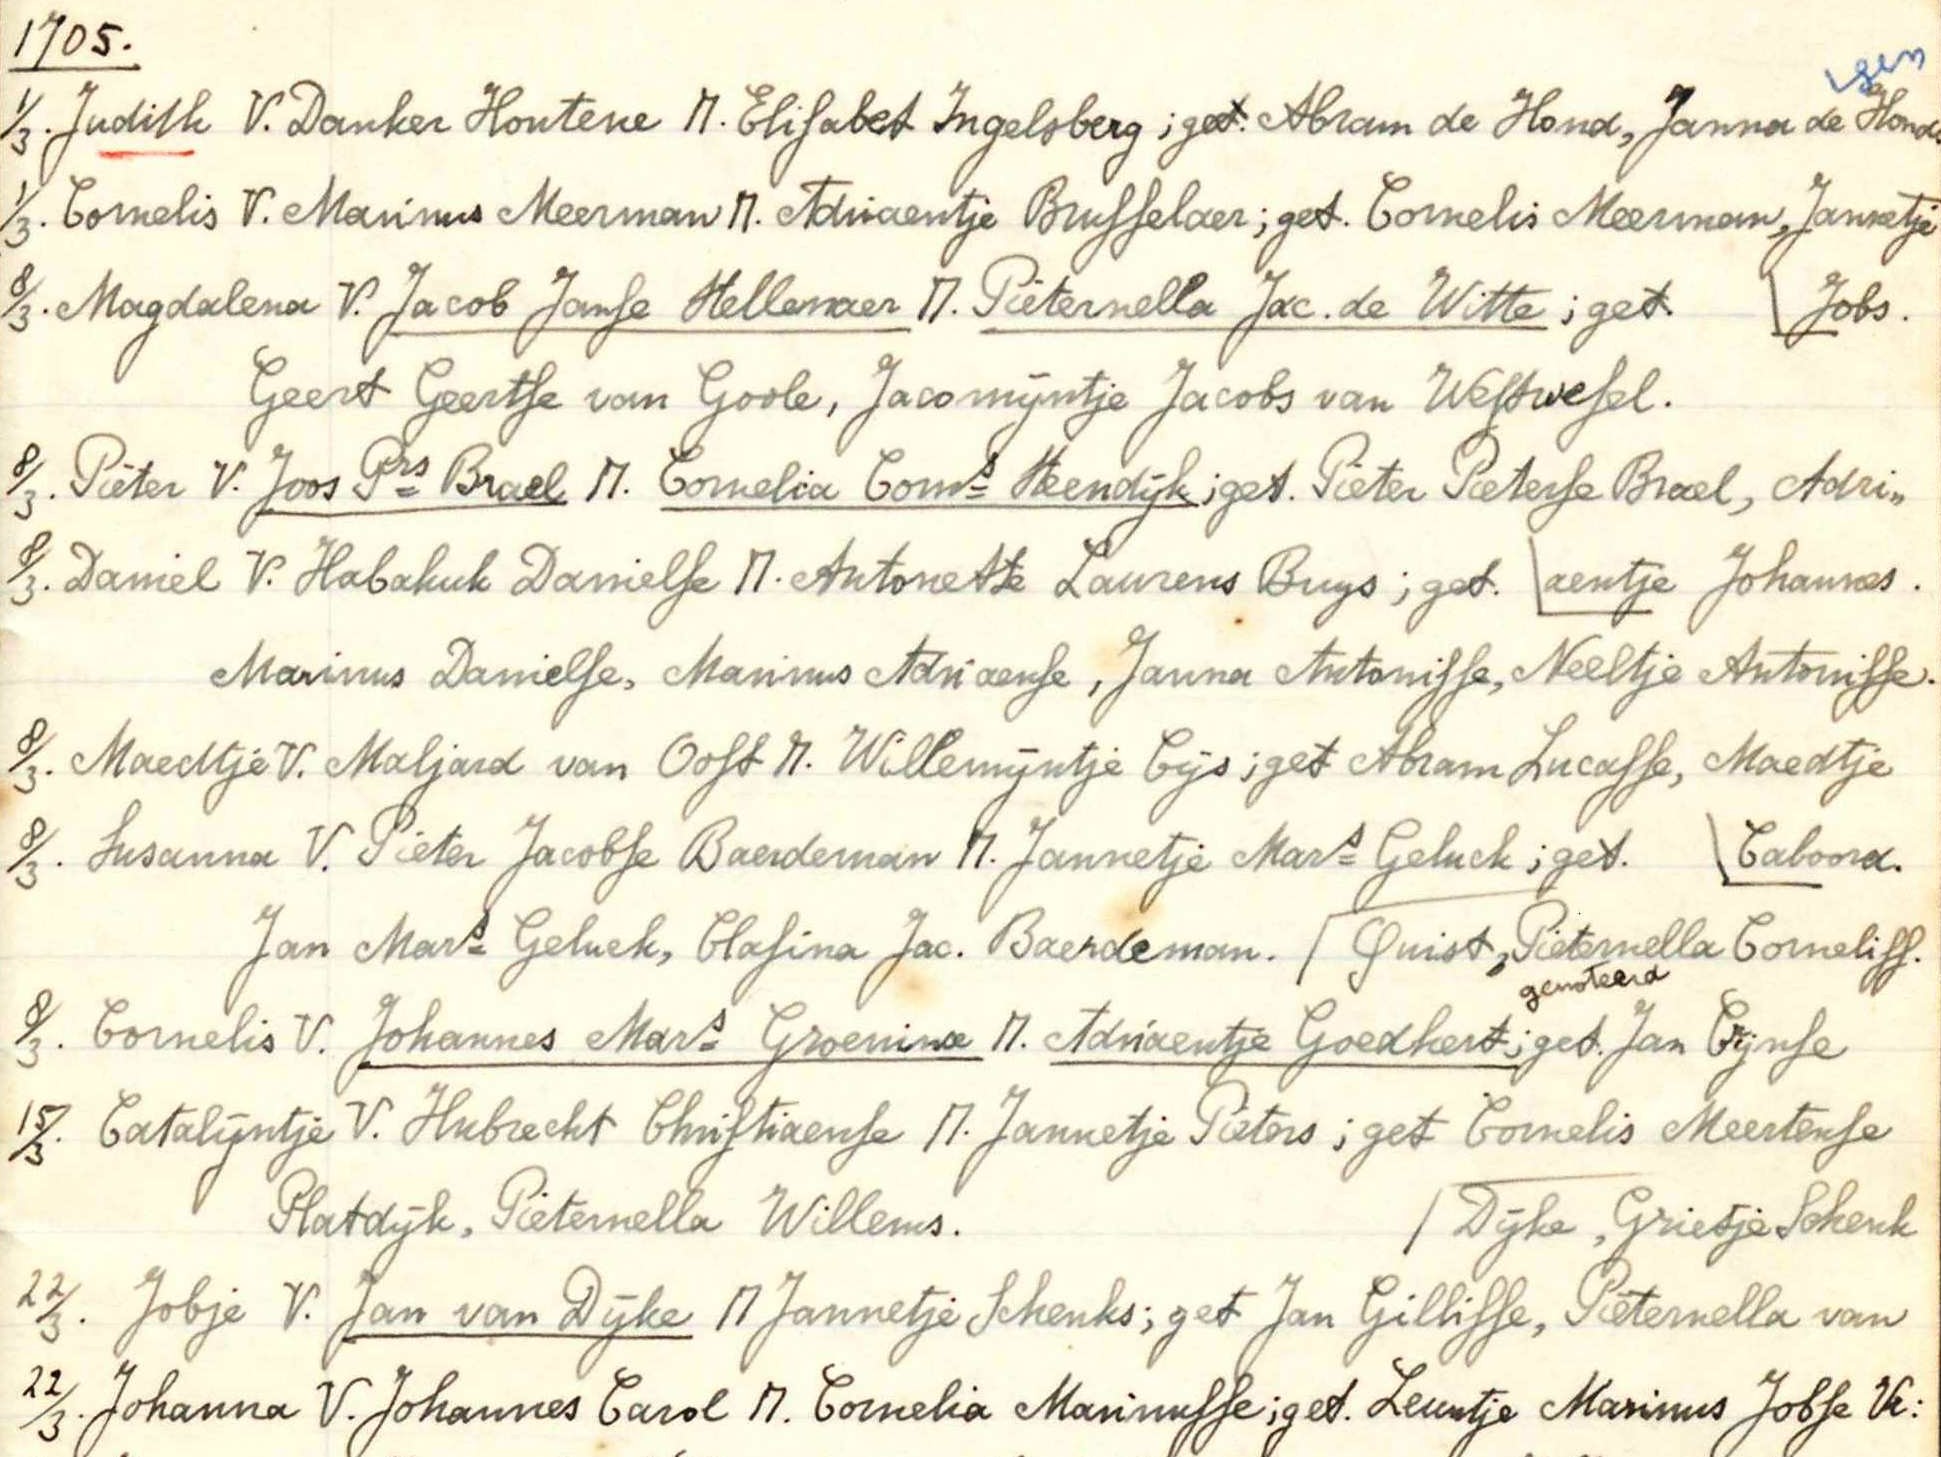 1705.
sen
1/3. Judith V. Danker Houtene M. Elisabet Ingelsberg; get. Abram de Hond, Janna de Hond
1/3. Cornelis V. Marinus Meerman M. Adriaentje Brusselaer; get. Cornelis Meerman, Jannetje
8/3. Magdalena V. Jacob Janse Hellenaer M. Pieternella Jac. de Witte; get. Jobs.
Geert Geertse van Goole, Jacomijntje Jacobs van Westwesel.
8/3. Pieter V. Joos Prs Brael M. Cornelia Corns Steendijk; get. Pieter Pieterse Brael, Adri„
8/3. Daniel V. Habakuk Danielse M. Antonette Laurens Buys; get. aentje Johannes.
Marinus Danielse, Marinus Adriaense, Janna Antonisse, Neeltje Antonisse.
8/3. Maedtje V. Maljard van Oost M. Willemijntje Cijs; get Abram Lucasse, Maedtje
8/3. Susanna V. Pieter Jacobse Baerdeman M. Jannetje Mars Geluck; get. Caboord.
Jan Mars Geluck, Clasina Jac. Baerdeman. Quist, Pieternella Corneliss.
genoteerd
8/3. Cornelis V. Johannes Mars Groeninx M. Adriaentje Goedkert; get. Jan Crijnse
15/3. Catalijntje V. Hubrecht Christiaense M. Jannetje Pieters; get Cornelis Meertense
Platdijk, Pieternella Willems. Dijke, Grietje Schenk
22/3. Jobje V. Jan van Dijke M Jannetje Schenks; get Jan Gillisse, Pieternella van
22/3. Johanna V. Johannes Carol M. Cornelia Marinusse; get. Leuntje Marinus Jobse Vr: